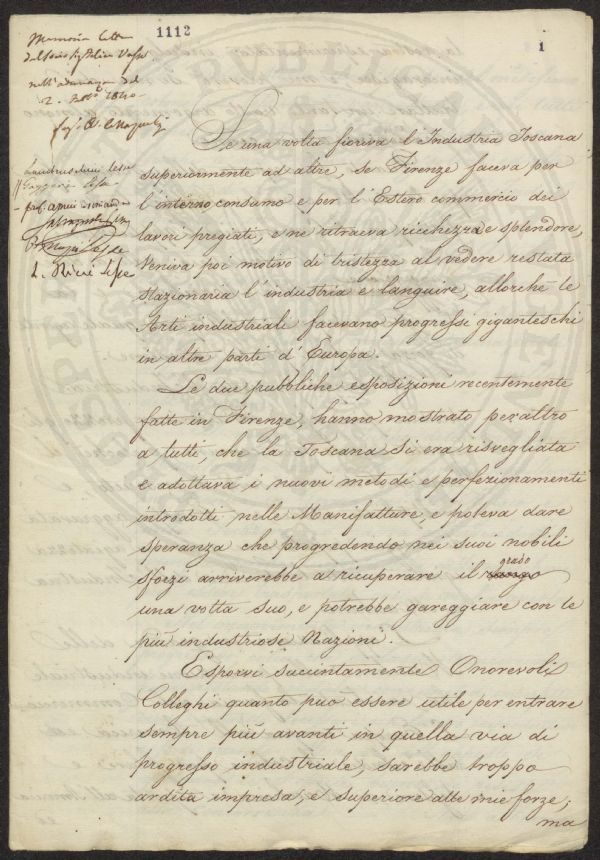 1112
1
Memoria letta
nell'adunanza del
Se una volta fioriva l'Industria Toscana
superiormente ad altre, se Firenze faceva per
l'interno consumo e per l'Estero commercio dei
lavori pregiati, e ne ritraeva ricchezza e splendore,
Veniva poi motivo di tristezza al vedere restata
stazionaria l'industria e languire, allorche le
Arti industriali facevano progressi giganteschi
in altre parti d'Europa.
Le due pubbliche esposizioni recentemente
fatte in Firenze, hanno mostrato peraltro
a tutti, che la Toscana si era risvegliata
e adottava i nuovi metodi e perfezionamenti
introdotti nelle Manifatture, e poteva dare
speranza che progredendo nei suoi nobili
sforzi arriverebbe a ricuperare il rango grado
una volta suo, e potrebbe gareggiare con le
più industriose Nazioni.
Esporvi succintamente Onorevoli
Colleghi quanto può essere utile per entrare
sempre più avanti in quella via di
progresso industriale, sarebbe troppo
ardita impresa, e superiore alle mie forze;
ma